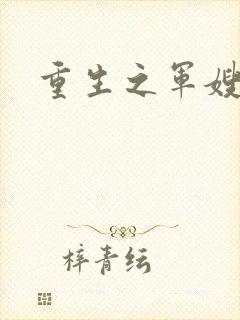 重生之军嫂
梓青纭